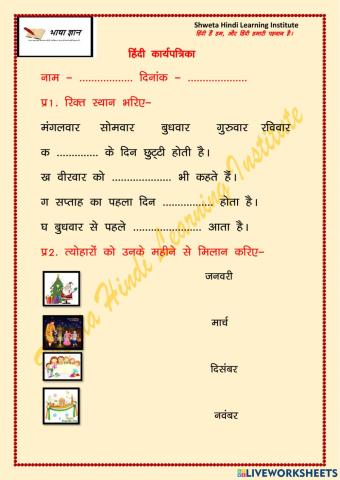 भाषा ज्ञान
Shweta Hindi Learning Institute
हिंदी हैं हम, और हिंदी हमारी पहचान है।
हिंदी कार्यपत्रिका
नाम – ................. दिनांक – ...................
प्र1. रिक्त स्थान भरिए–
मंगलवार सोमवार बुधवार गुरुवार रविवार
क ............. के दिन छुट्टी होती है।
ख वीरवार को ................... भी कहते हैं।
ग सप्ताह का पहला दिन ................ होता है।
घ बुधवार से पहले ...................... आता है।
प्र2. त्योहारों को उनके महीने से मिलान करिए–
जनवरी
मार्च
दिसंबर
नवंबर
Shweta Hindi Learning Institute
LIVEWORKSHEETS